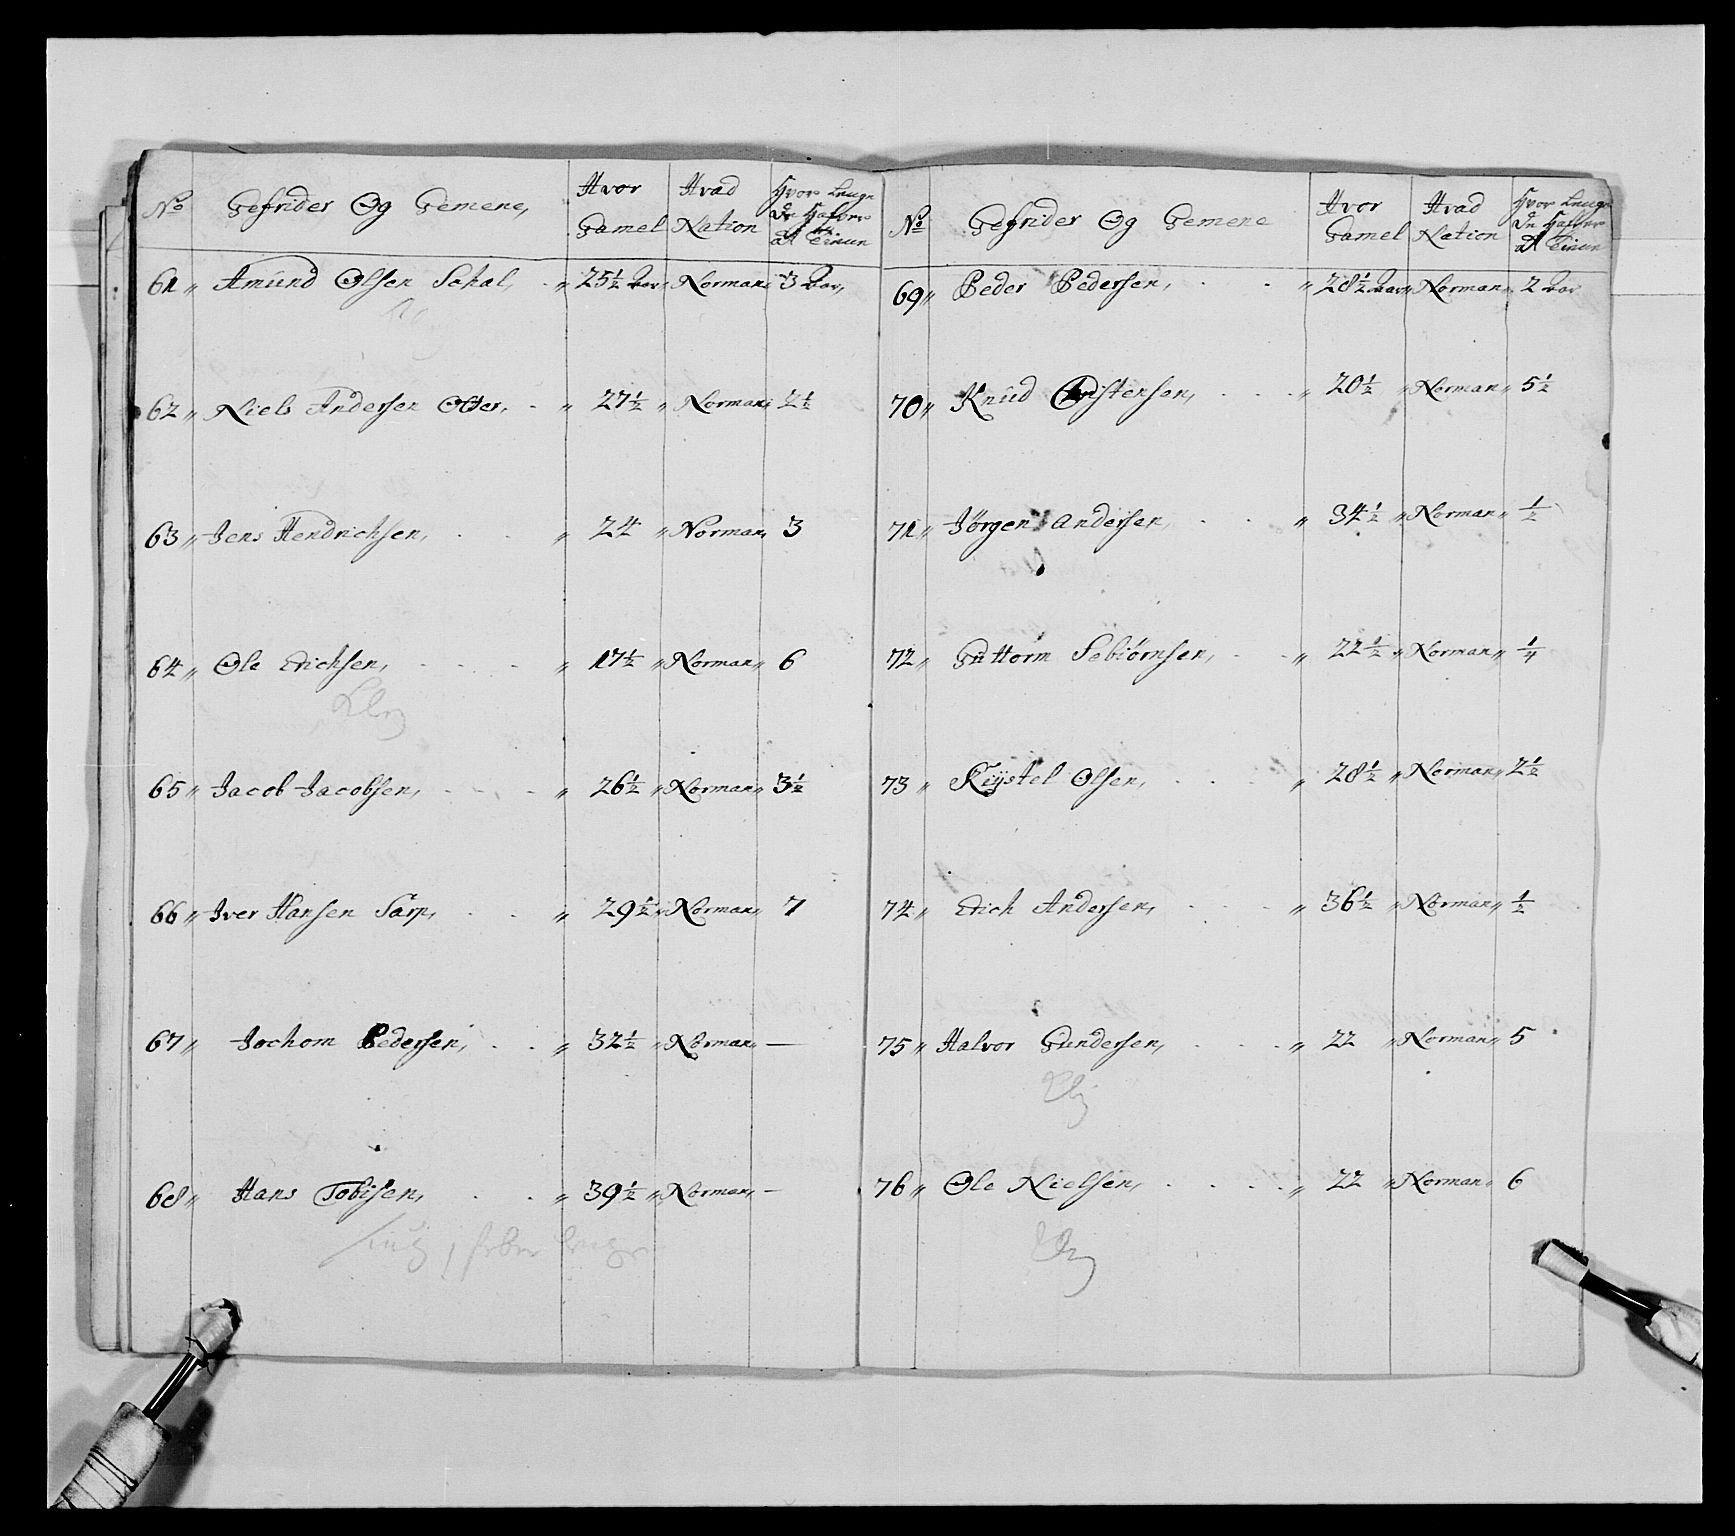 No Gefrider Og Gemene, Hvor Gamel Hvad Nation Hvor Lenge
61 " Amund Olsen " 25½ aar " Norman " 3 aar,
62 " Niels Andersen Otter, " 27½ " Norman " 2½
63 " Jens Hendrichsen, " 24 " Norman " 3
64 " Ole Erichsen, " 17½ " Norman " 6
65 " Jacob Jacobsen, " 26½ " Norman " 3½
66 " Iver Hansen Sarp, " 29½ " Norman " 7
67 " Jochom Pedersen, " 32½ " Norman " —
68 " Hans Tobisen, " 39½ " Norman " —
No Gefrider Og Gemene Hvor Gamel Hvad Nation Hvor Lenge
69 " Peder Pedersen, " 28½ aar " Norman " 2 aar
70 " Knud Cristensen, " 20½ " Norman " 5½
71 " Jørgen Andersen, " 34½ " Norman " ½
72 " Guttorm Sebiørnsen, " 22½ " Norman " ¼
73 " Kiystel Olsen, " 28½ " Norman " 2½
74 " Erich Andersen, " 36½ " Norman " ½
75 " Halvor Gundersen, " 22 " Norman " 5
76 " Ole Nielsen, " 22 " Norman " 6